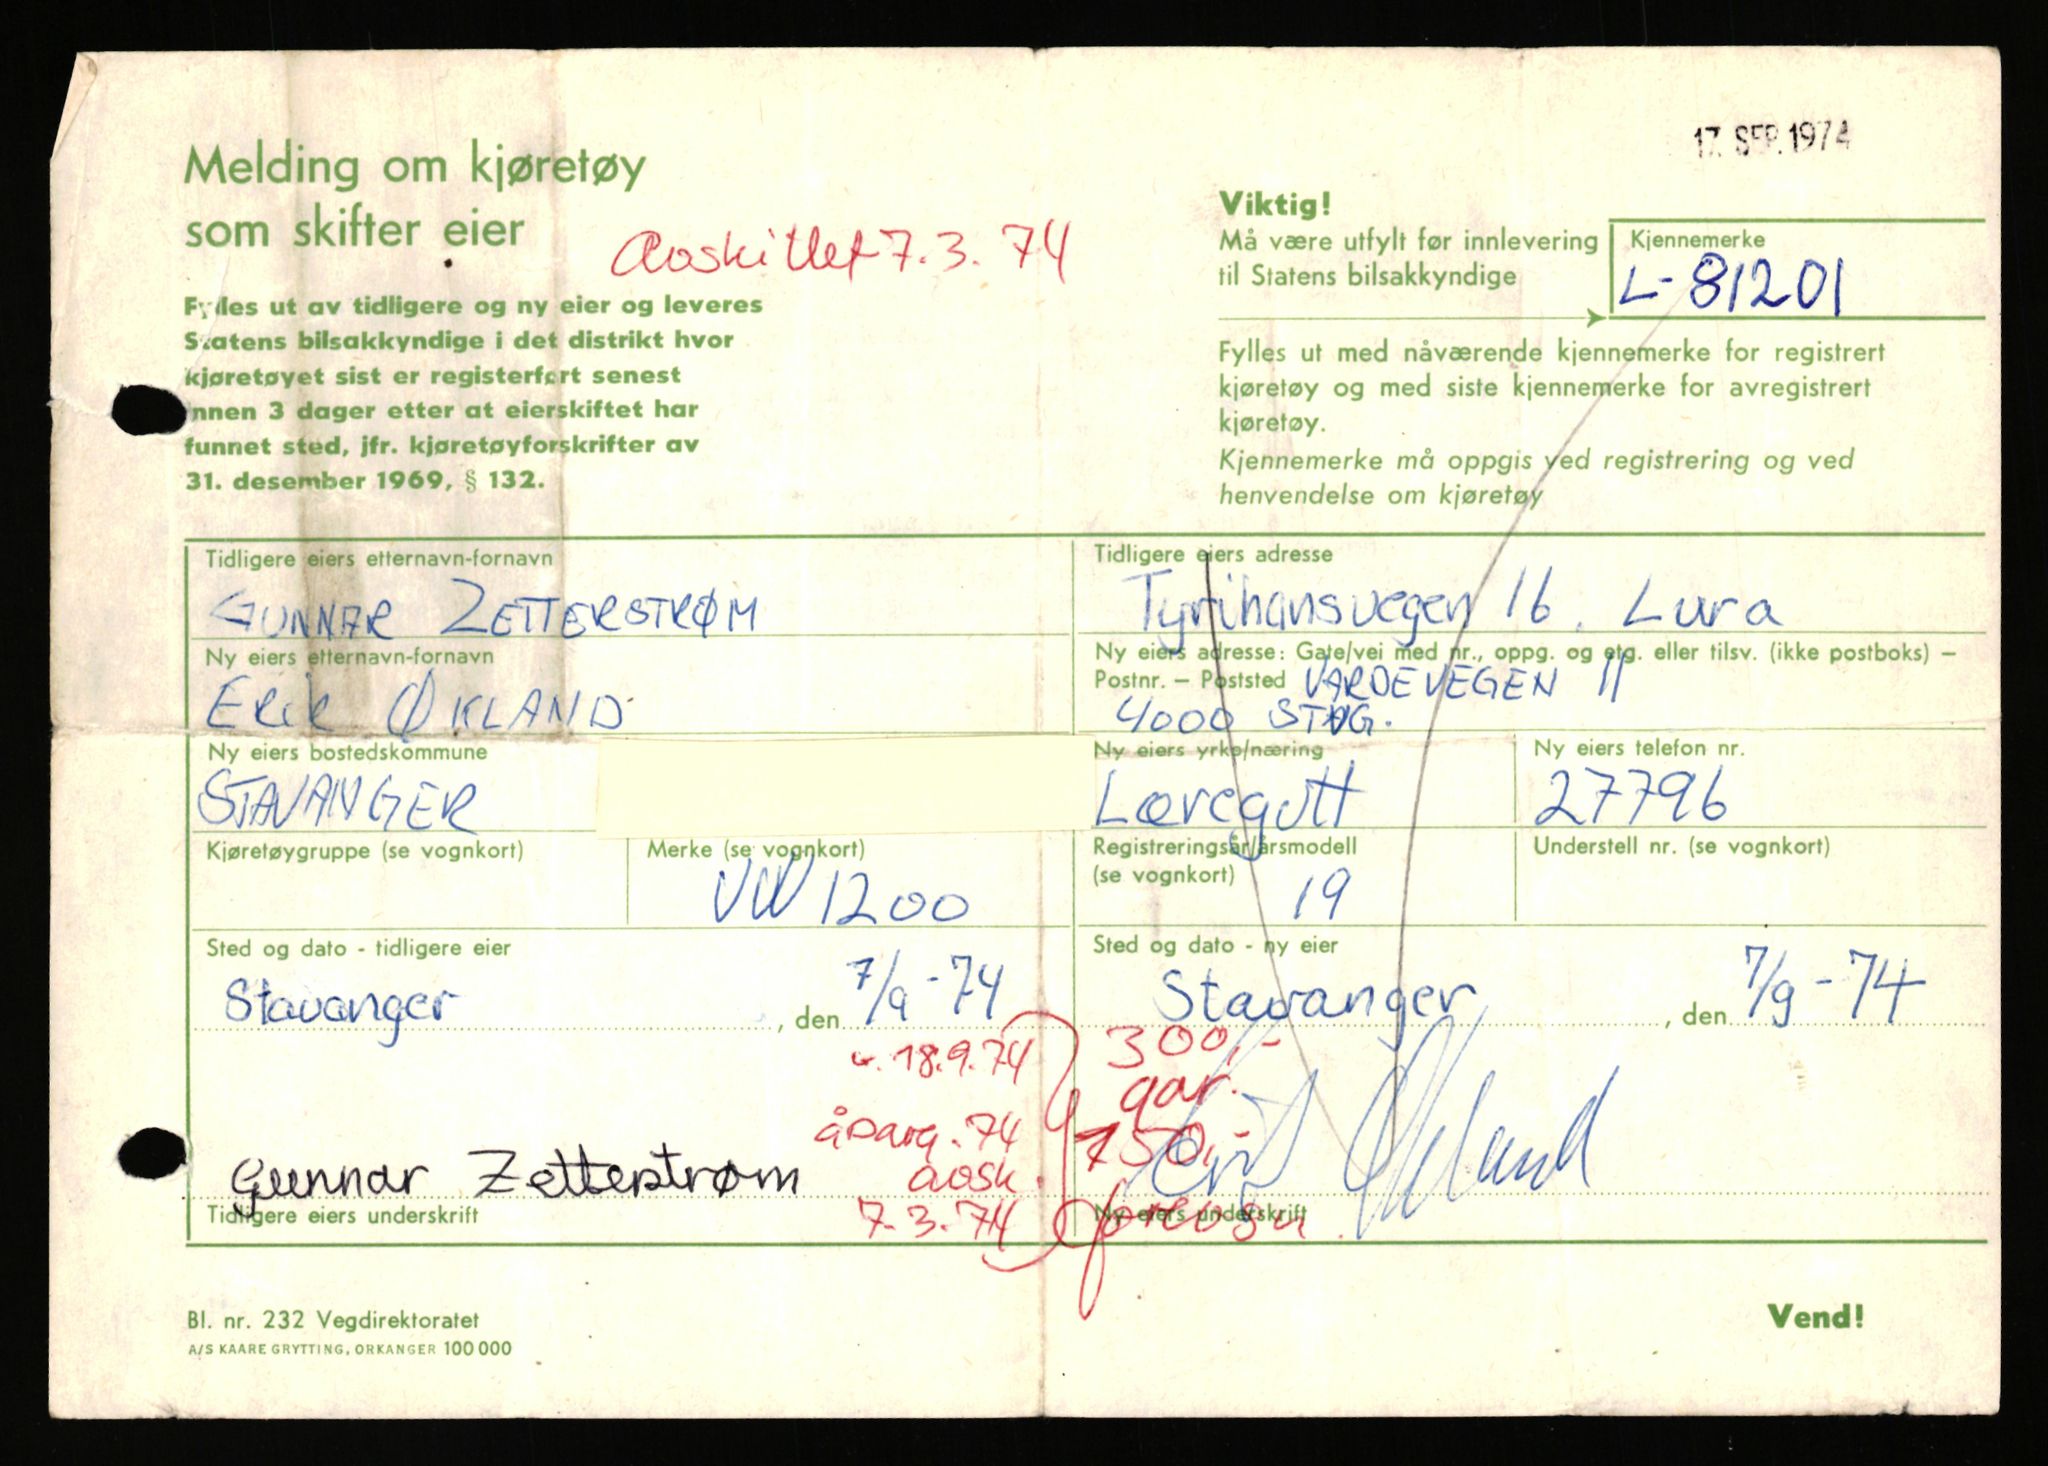 17. SEP. 1974
Melding om kjøretøy
som skifter eier
Avskiltet 7.3.74
Viktig!
Må være utfylt før innlevering
til Statens bilsakkyndige
Kjennemerke
L-81201
Fylles ut av tidligere og ny eier og leveres
Statens bilsakkyndige i det distrikt hvor
kjøretøyet sist er registerført senest
innen 3 dager etter at eierskiftet har
funnet sted, jfr. kjøretøyforskrifter av
31. desember 1969, § 132.
Fylles ut med nåværende kjennemerke for registrert
kjøretøy og med siste kjennemerke for avregistrert
kjøretøy.
Kjennemerke må oppgis ved registrering og ved
henvendelse om kjøretøy
Tidligere eiers etternavn-fornavn
GUNNAR ZETTERSTRØM
Tidligere eiers adresse
Tyrihansvegen 16. Lura
Ny eiers etternavn-fornavn
ERIK ØKLAND
Ny eiers adresse: Gate/vei med nr., oppg. og etg. eller tilsv. (ikke postboks) –
Postnr. – Poststed VARDEVEGEN 11
4000 STVG.
Ny eiers bostedskommune
STAVANGER
Ny eiers yrke/næring
Læregutt
Ny eiers telefon nr.
27796
Kjøretøygruppe (se vognkort)
Merke (se vognkort)
VW 1200
Registreringsår/årsmodell
(se vognkort) 19
Understell nr. (se vognkort)
Sted og dato - tidligere eier
Stavanger, den 7/9-74
Sted og dato - ny eier
Stavanger, den 7/9-74
18.9.74
300,-
gar.
åparg. 74
150,-
avsk.
7.3.74
Gunnar Zetterstrøm
Tidligere eiers underskrift
Erik Økland
Ny eiers underskrift
Bl. nr. 232 Vegdirektoratet
A/S KAARE GRYTTING, ORKANGER 100 000
Vend!